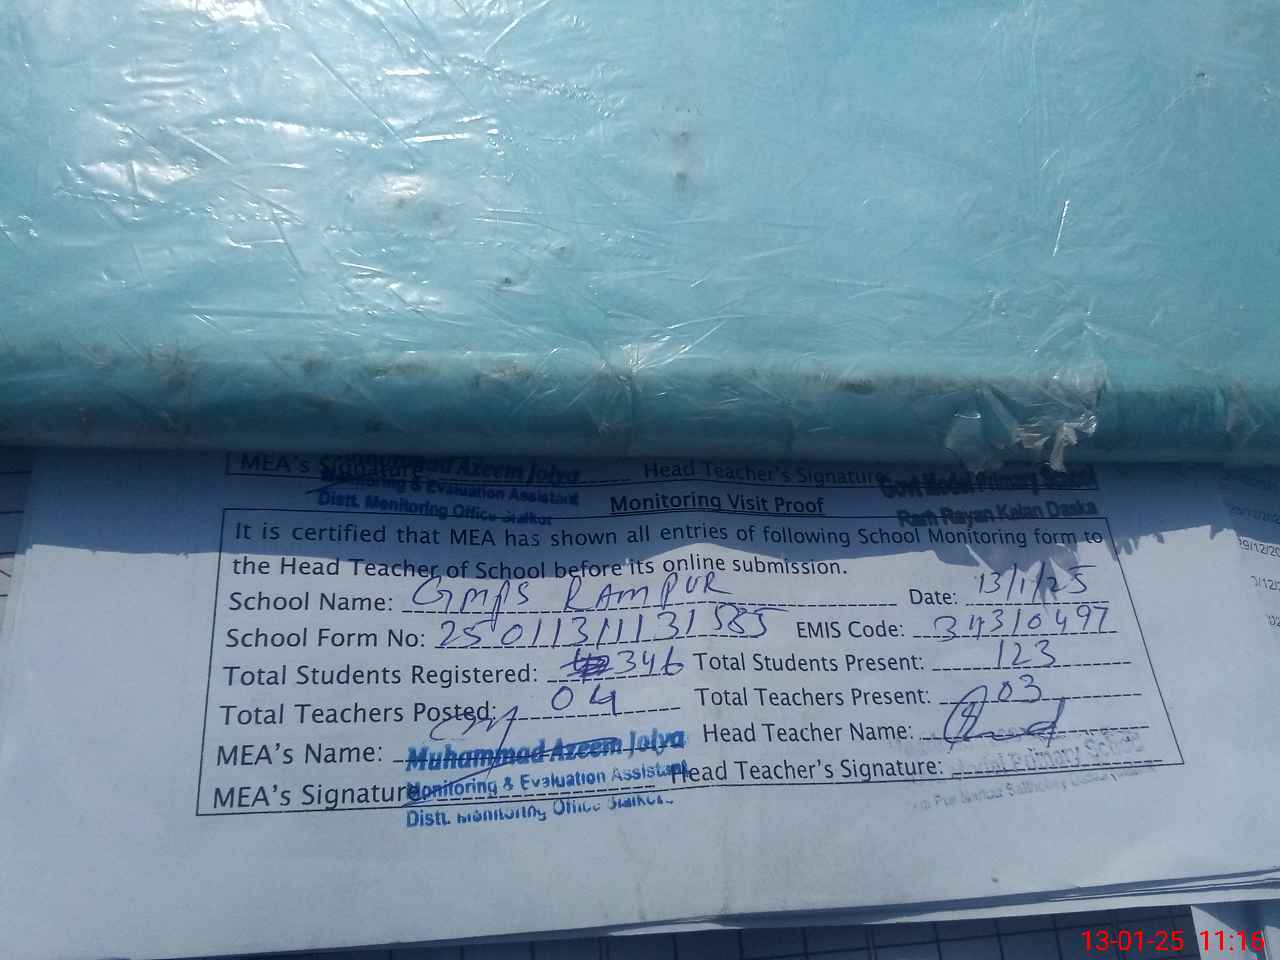 MEA's Signature Muhammad Azeem Joiya Head Teacher's Signature
Monitoring & Evaluation Assistant Govt Model Primary School
Distt. Monitoring Office Sialkot Monitoring Visit Proof Ram Rayan Kalan Daska
It is certified that MEA has shown all entries of following School Monitoring form to
the Head Teacher of School before its online submission.
School Name: GMPS RAMPUR Date: 13/1/25
School Form No: 2501131131585 EMIS Code: 34310497
Total Students Registered: 346 Total Students Present: 123
Total Teachers Posted: 04 Total Teachers Present: 03
MEA's Name: Muhammad Azeem Joiya Head Teacher Name:
MEA's Signature Monitoring & Evaluation Assistant Head Teacher's Signature: Model Primary School
Distt. Monitoring Office Sialkot
29/12/20
13-01-25 11:16